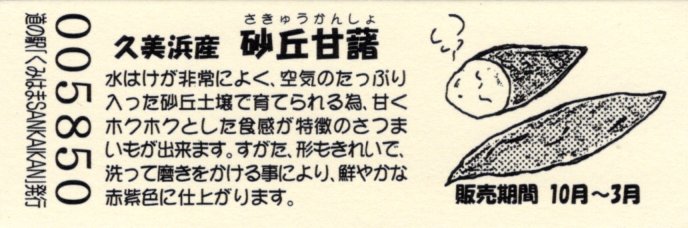 道の駅「くみはまSANKAIKAN」発行
005850
さきゅうかんしょ
久美浜産 砂丘甘藷
水はけが非常によく、空気のたっぷり
入った砂丘土壌で育てられる為、甘く
ホクホクとした食感が特徴のさつま
いもが出来ます。すがた、形もきれいで、
洗って磨きをかける事により、鮮やかな
赤紫色に仕上がります。
販売期間 10月～3月